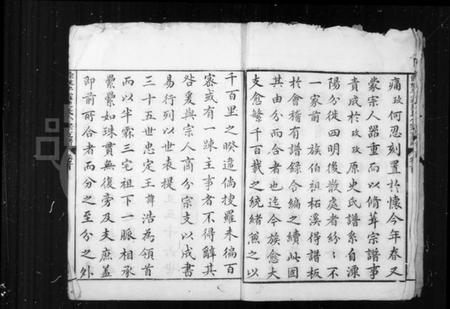 痛玫何忍刻置於懷今年春又
蒙宗人器重而以脩葺宗譜事
責成於玫玫原史氏譜系自溧
陽分徙四明後散處者紛紛不
一家前族伯祖柘溪得譜板
於會稽有譜録合編之續此固
其由分而合者也迄今族愈大
支愈繁千百載之統緒煞之以
千百里之暌違倘搜羅未徧百
密或有一踈主事者不得辭其
咎爰與宗人商分宗支以成書
易行列以世表提
三十五世忠定王諱浩為領首
而以半霸三宅祖下一脈相承
纍纍如珠貫無復旁及夫庶蓋
即前所合者而分之至分之外